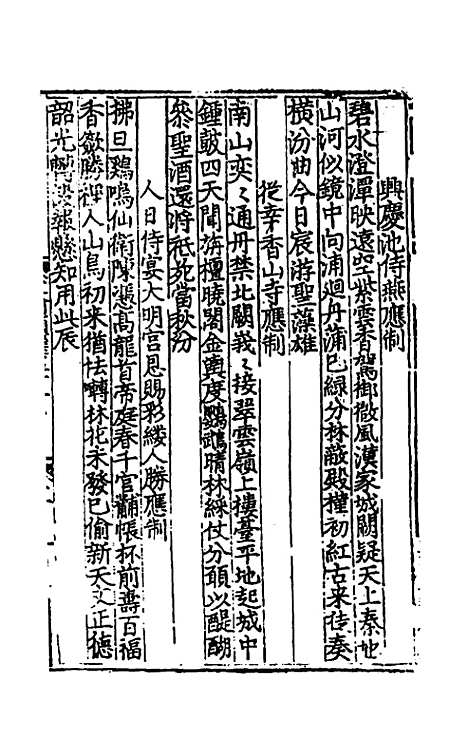 興慶池侍燕應制
碧水澄潭映遠空紫雲香駕御微風漢家城闕疑天上秦地
山河似鏡中向浦迴舟蒲已綠分林蔽殿槿初紅古来徒奏
横汾曲今日宸游聖藻雄
從幸香山寺應制
南山奕〻通舟禁北闕峩〻接翠雲嶺上樓臺平地起城中
鍾皷四天聞旃檀曉閣金輿度鸚鵡晴林綵仗分頭以醍醐
叅聖酒還將祇苑當秋汾
人日侍宴大明宫恩賜彩縷人勝應制
拂旦鷄鳴仙衛陳憑高龍首帝庭春千官黼帳杯前壽百福
香奩勝裡人山鳥初来猶怯囀林花未發已偷新天文正德
韶光轉設報懸知用此辰